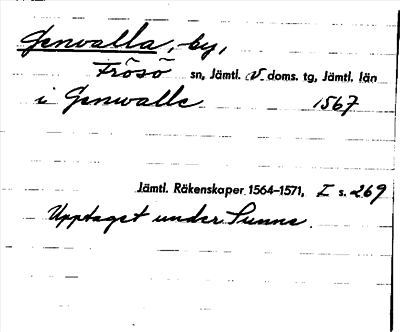 Genvalla, by,
Frösö sn, Jämtl. v. doms. tg, Jämtl. län
i Genwalle 1567
Jämtl. Räkenskaper 1564–1571, I s. 269
Upptaget under Sunne.